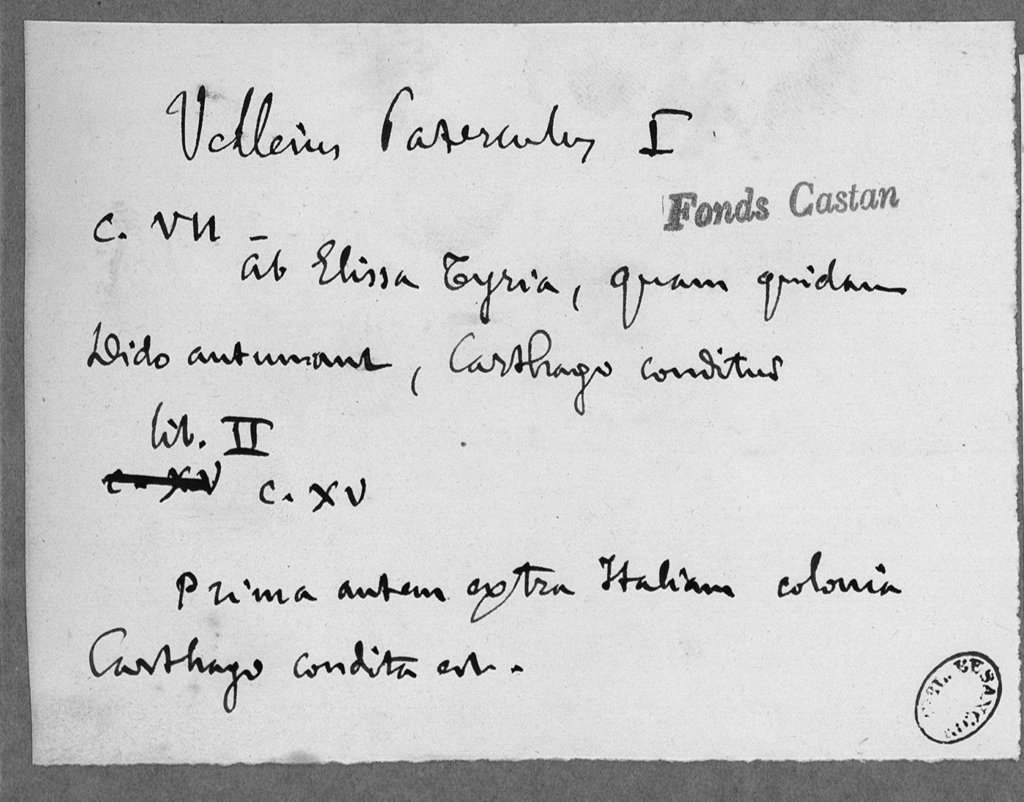 Velleius Paterculus I
Fonds Castan
c. VII
ab Elissa Tyria, quam quidam
Dido autumant, Carthago conditur
lib. II
c. XV c. XV
Prima autem extra Italiam colonia
Carthago condita est.
BIBL. BESANÇON